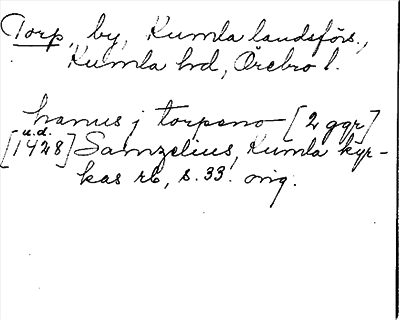 Torp, by, Kumla landsförs.,
Kumla hd, Örebro l.
hanus j torpeno [2 ggr]
u.d.
[1428] Samzelius, Kumla kyr-
kas rb, s. 33. orig.